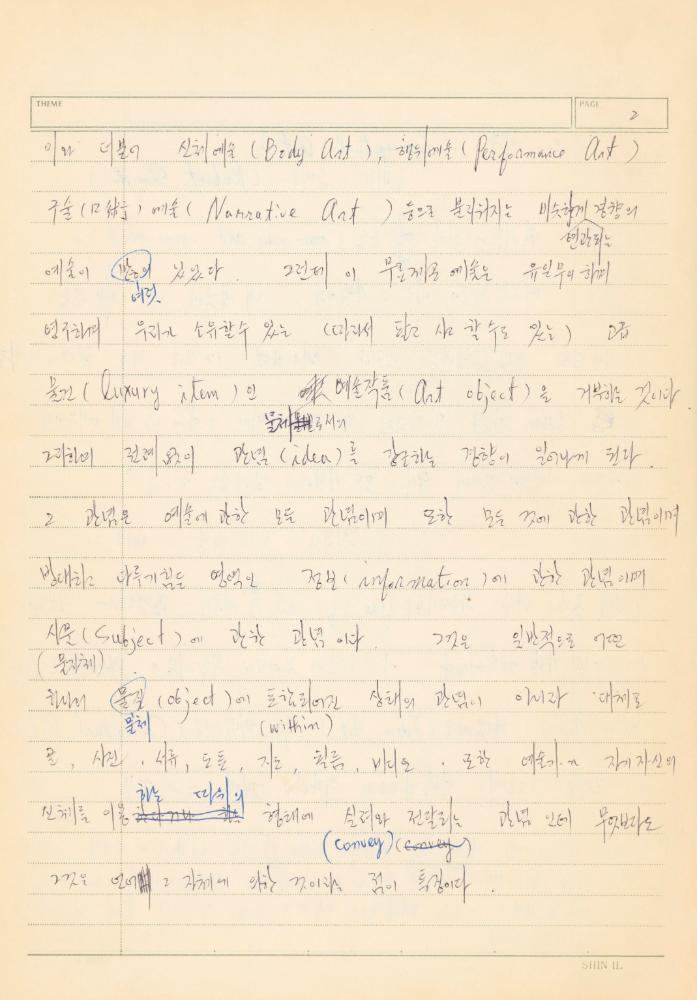 THEME
PAGE 2
이와 더불어 신체예술 (Body Art), 행위예술 (Performance Art)
구술(口術) 예술 (Narrative Art) 등으로 불리워지는 비슷하게 경향의
연관되는
예술이 많이 있었다. 그런데 이 모든 예술은 유일무이하며
여럿
영구하며 우리가 소유할 수 있는 (따라서 팔고 사고 할 수도 있는) 고급
물건 (luxury item) 인 예술작품 (Art object) 을 거부하는 것이다.
물체로서의
그리하여 전례없이 관념 (idea)를 강조하는 경향이 일어나게 된다.
그 관념은 예술에 관한 모든 관념이며 또한 모든 것에 관한 관념이며
방대하고 다루기 힘든 영역인 정보 (information) 에 관한 관념이며
사물 (Subject) 에 관한 관념이다. 그것은 일반적으로 어떤
(물자체)
하나의 물질 (object)에 포함되어진 상태의 관념이 아니라 대체로
물체 (within)
글, 사진, 서류, 도표, 지도, 필름, 비디오, 또한 예술가 자기자신의
하는 따위의
신체를 이용 형태에 실려와 전달되는 관념인데 무엇보다도
(convey) (convey)
그것은 언어 그 자체에 의한 것이라는 점이 특징이다.
SHIN IL